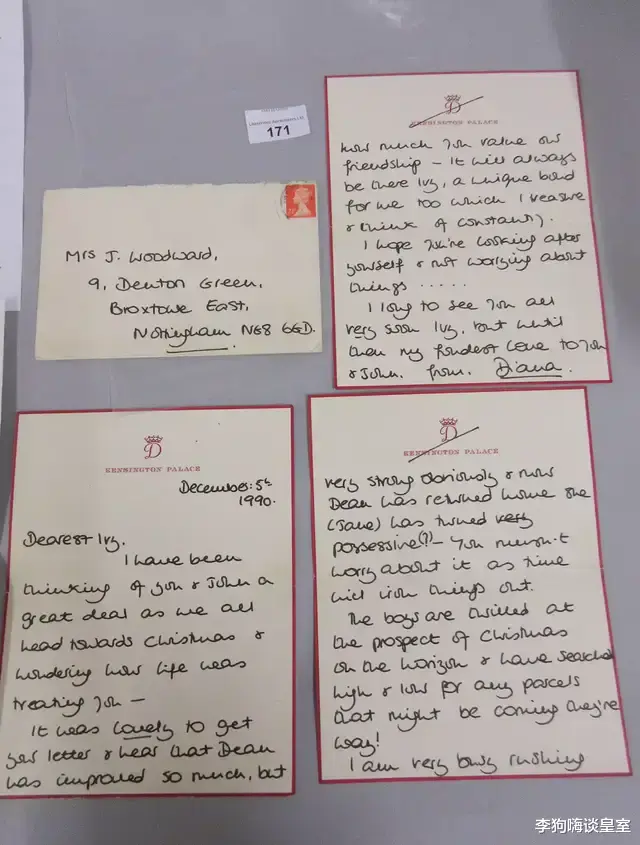 171
Mrs J. Woodward,
9, Denton Green,
Broxtowe East,
Nottingham NG8 6GD.
D
KENSINGTON PALACE
December: 5th
1990.
Dearest Ivy,
I have been
thinking of you & John a
great deal as we all
head towards Christmas &
wondering how life was
treating you –
It was lovely to get
yor letter & hear that Dean
has improved so much, but
D
KENSINGTON PALACE
very strong obviously & now
Dean has returned home she
(Jane) has turned very
possessive(?) – You mustn't
worry about it as time
will iron things out.
The boys are thrilled at
the prospect of Christmas
on the horizon & have searched
high & low for any parcels
that might be coming they're
way!
I am very busy rushing
D
KENSINGTON PALACE
how much you value our
friendship – It will always
be there Ivy, a unique bond
for me too which I treasure
& think of constantly.
I hope you're looking after
yourself & not worrying about
things . . . . .
I long to see you all
very soon Ivy, but until
then my fondest love to you
& John. from. Diana.
李狗嗨谈皇室